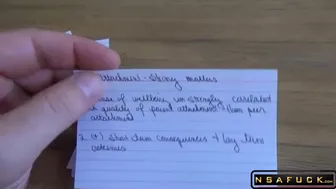 attachment - strong matters
sense of wellbeing was strongly correlated
w quality of parent attachment than peer
attachment
2. (+) short term consequences + long term
outcomes
NSAFUCK.COM